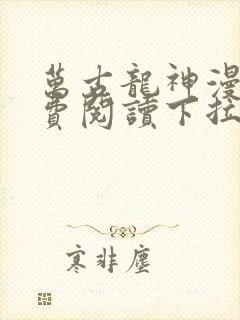 萬古龍神漫
費閱讀下拉
寒非塵